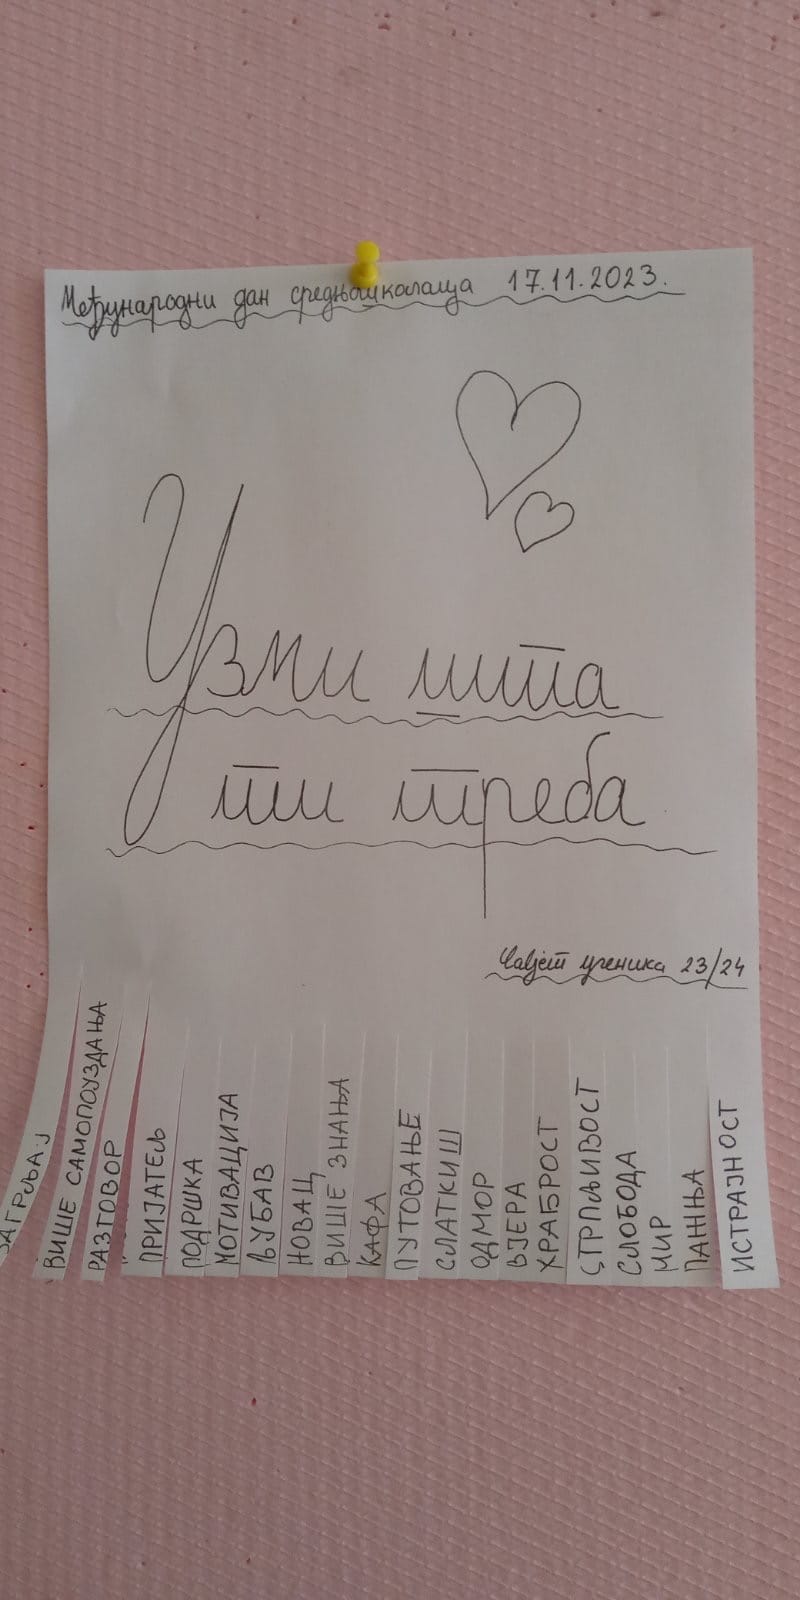 Међународни дан средњошколаца 17.11.2023.
Узми шта
ти треба
Савјет ученика 23/24
ЗАГРЉАЈ
ВИШЕ САМОПОУЗДАЊА
РАЗГОВОР
ПРИЈАТЕЉ
ПОДРШКА
МОТИВАЦИЈА
ЉУБАВ
НОВАЦ
ВИШЕ ЗНАЊА
КАФА
ПУТОВАЊЕ
СЛАТКИШ
ОДМОР
ВЈЕРА
ХРАБРОСТ
СТРПЉИВОСТ
СЛОБОДА
МИР
ПАЖЊА
ИСТРАЈНОСТ